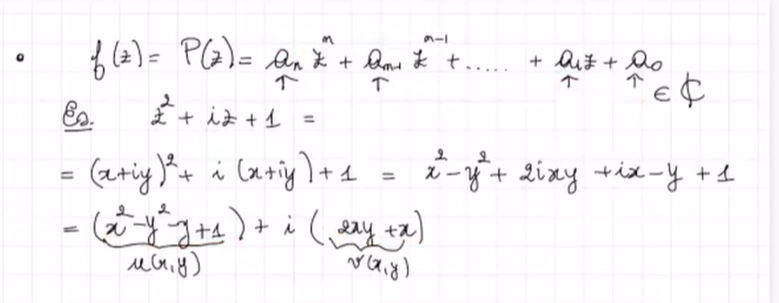 • f(z) = P(z) = aₙ zⁿ + aₙ₋₁ zⁿ⁻¹ + ..... + a₁z + a₀
↑ ↑ ↑ ↑ ∈ ℂ
Es. z² + iz + 1 =
= (x+iy)² + i (x+iy) + 1 = x² - y² + 2ixy + ix - y + 1
= (x² - y² - y + 1) + i (2xy + x)
u(x,y) v(x,y)